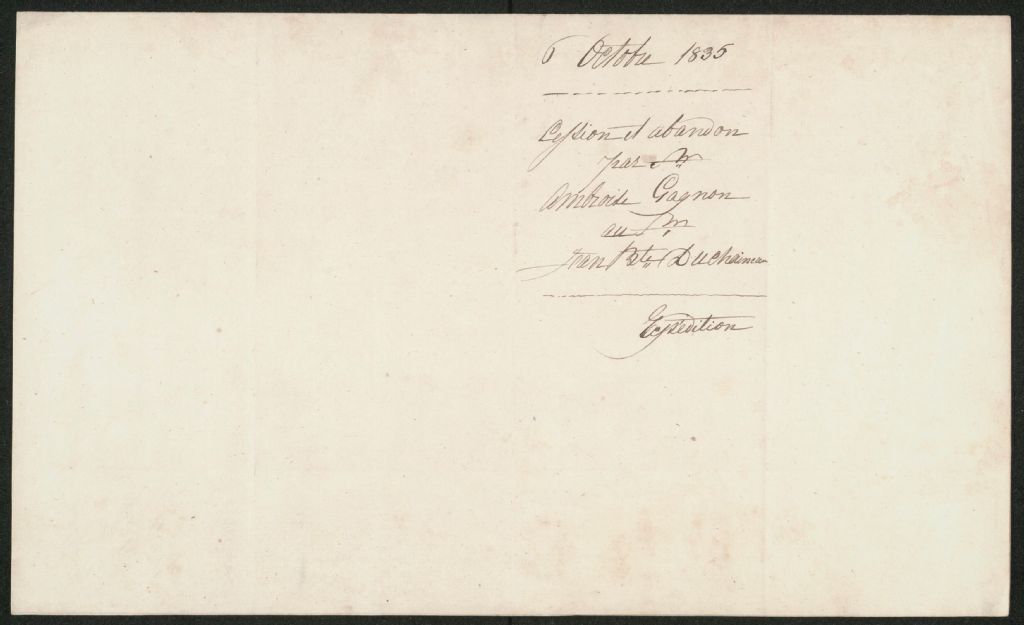 6 Octobre 1835
Cession et abandon
par Sr
Ambroise Gagnon
au Sr
Jean Bte Duchaineau
Expédition